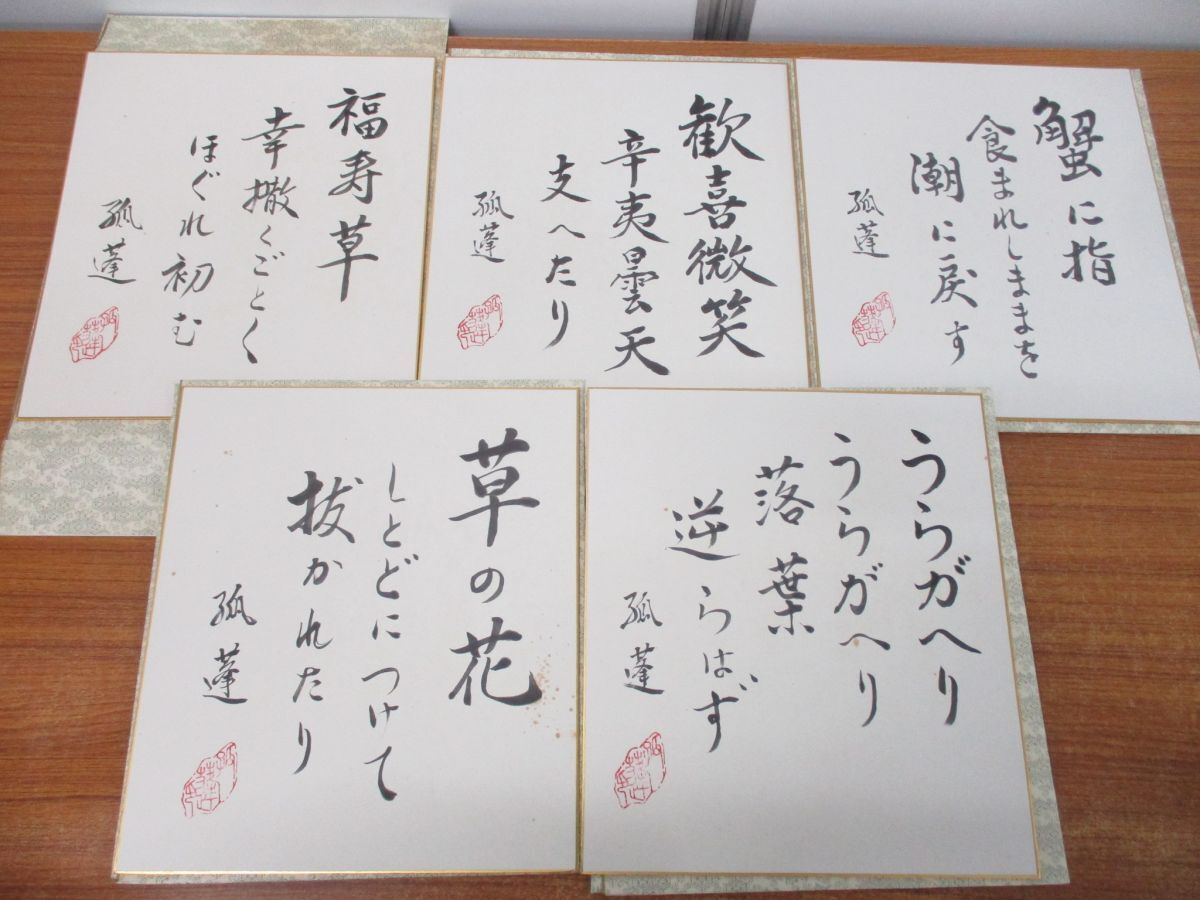 蟹に指
食まれしままを
潮に戻す
孤蓬
歓喜微笑
辛夷曇天
支へたり
孤蓬
福寿草
幸撒くごとく
ほぐれ初む
孤蓬
うらがへり
うらがへり
落葉
逆らはず
孤蓬
草の花
しとどにつけて
抜かれたり
孤蓬